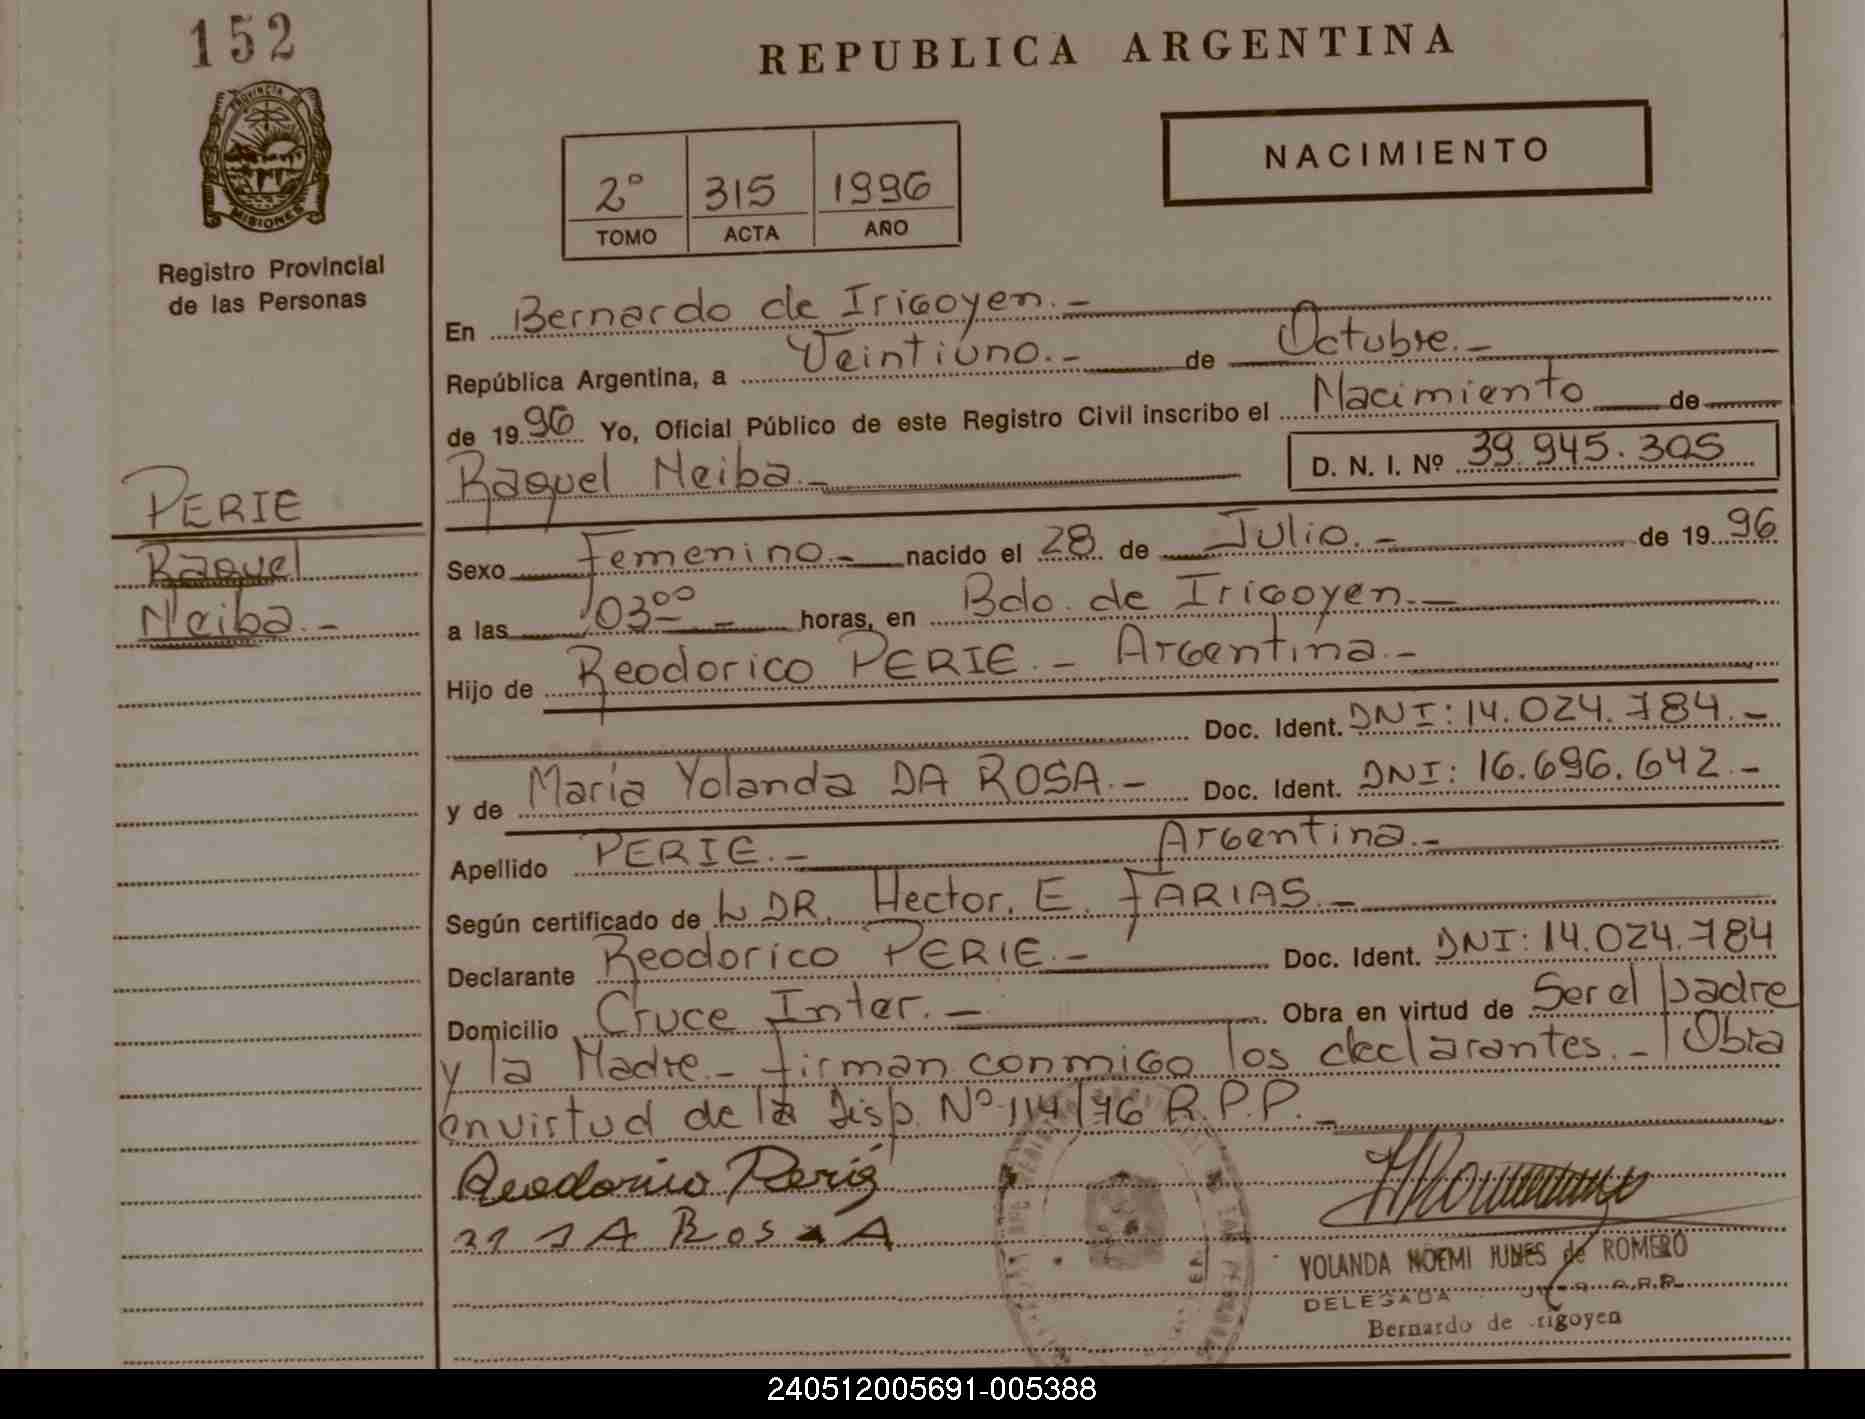 152
PROVINCIA DE
MISIONES
Registro Provincial
de las Personas
PERIE
Raquel
Neiba.-
REPUBLICA ARGENTINA
NACIMIENTO
2° 315 1996
TOMO ACTA AÑO
En Bernardo de Irigoyen.-
República Argentina, a Veintiuno.- de Octubre.-
de 1996 Yo, Oficial Público de este Registro Civil inscribo el Nacimiento de
Raquel Neiba.- D. N. I. Nº 39.945.305
Sexo Femenino.- nacido el 28 de Julio.- de 1996
a las 03⁰⁰.- horas, en Bdo. de Irigoyen.-
Hijo de Reodorico PERIE.- Argentina.-
Doc. Ident. DNI: 14.024.784.-
y de María Yolanda DA ROSA.- Doc. Ident. DNI: 16.696.642.-
Apellido PERIE.- Argentina.-
Según certificado de DR. Hector. E. FARIAS.-
Declarante Reodorico PERIE.- Doc. Ident. DNI: 14.024.784
Domicilio Cruce Inter.- Obra en virtud de Ser el padre
y la Madre.- firman conmigo los declarantes.- Obra
en virtud de la Disp. Nº 114/76 R.P.P.-
Reodorico Perié
DA ROSA
YOLANDA NOEMI JUNES de ROMERO
DELEGADA R.P.P.
Bernardo de Irigoyen
240512005691-005388